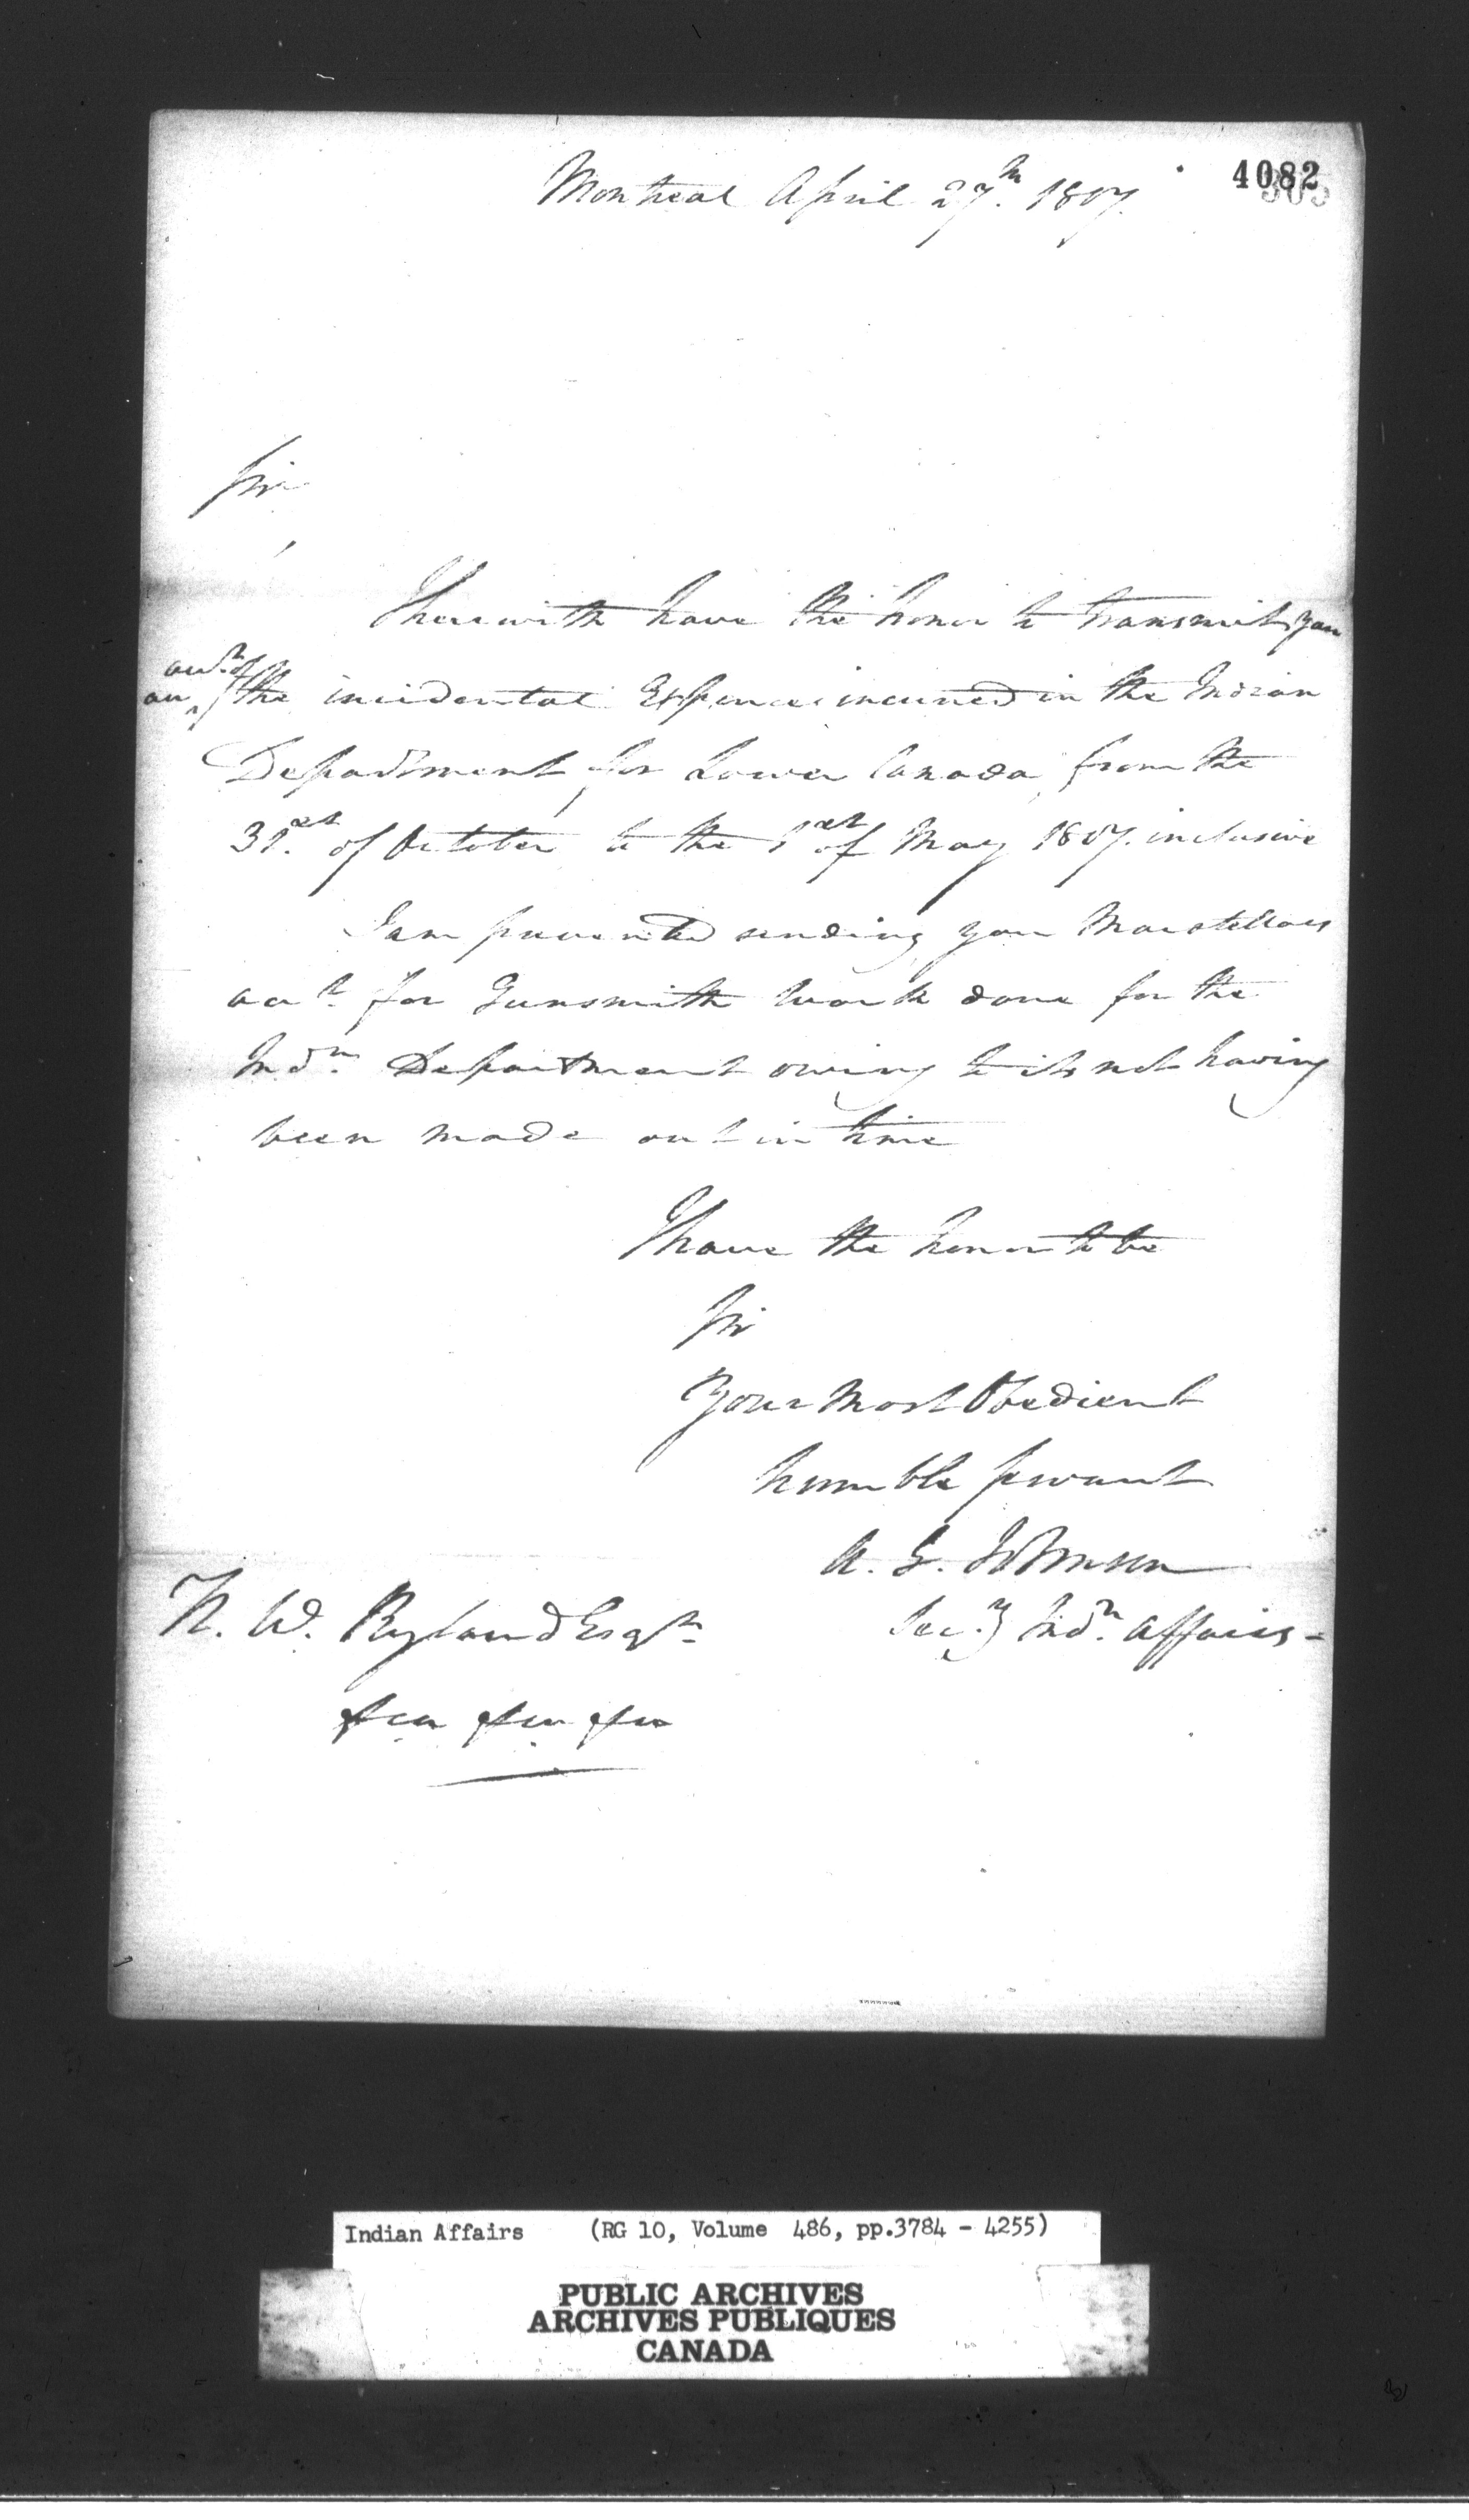 4082
305
Montreal April 27.th 1807.
Sir
I herewith have the honor to transmit you
an acc.t of the incidental Expences incurred in the Indian
Department for Lower Canada from the
31.st of October to the 1st of May 1807. inclusive
I am prevented sending you
acc.t for Gunsmith work done for the
Ind.n Department owing to its not having
been made out in time
I have the honor to be
Sir
Your Most Obedient
humble Servant
H. W. Ryland Esqr.
Sec.y Ind.n Affairs -
&ca &ca &ca
Indian Affairs (RG 10, Volume 486, pp.3784 - 4255)
PUBLIC ARCHIVES
ARCHIVES PUBLIQUES
CANADA